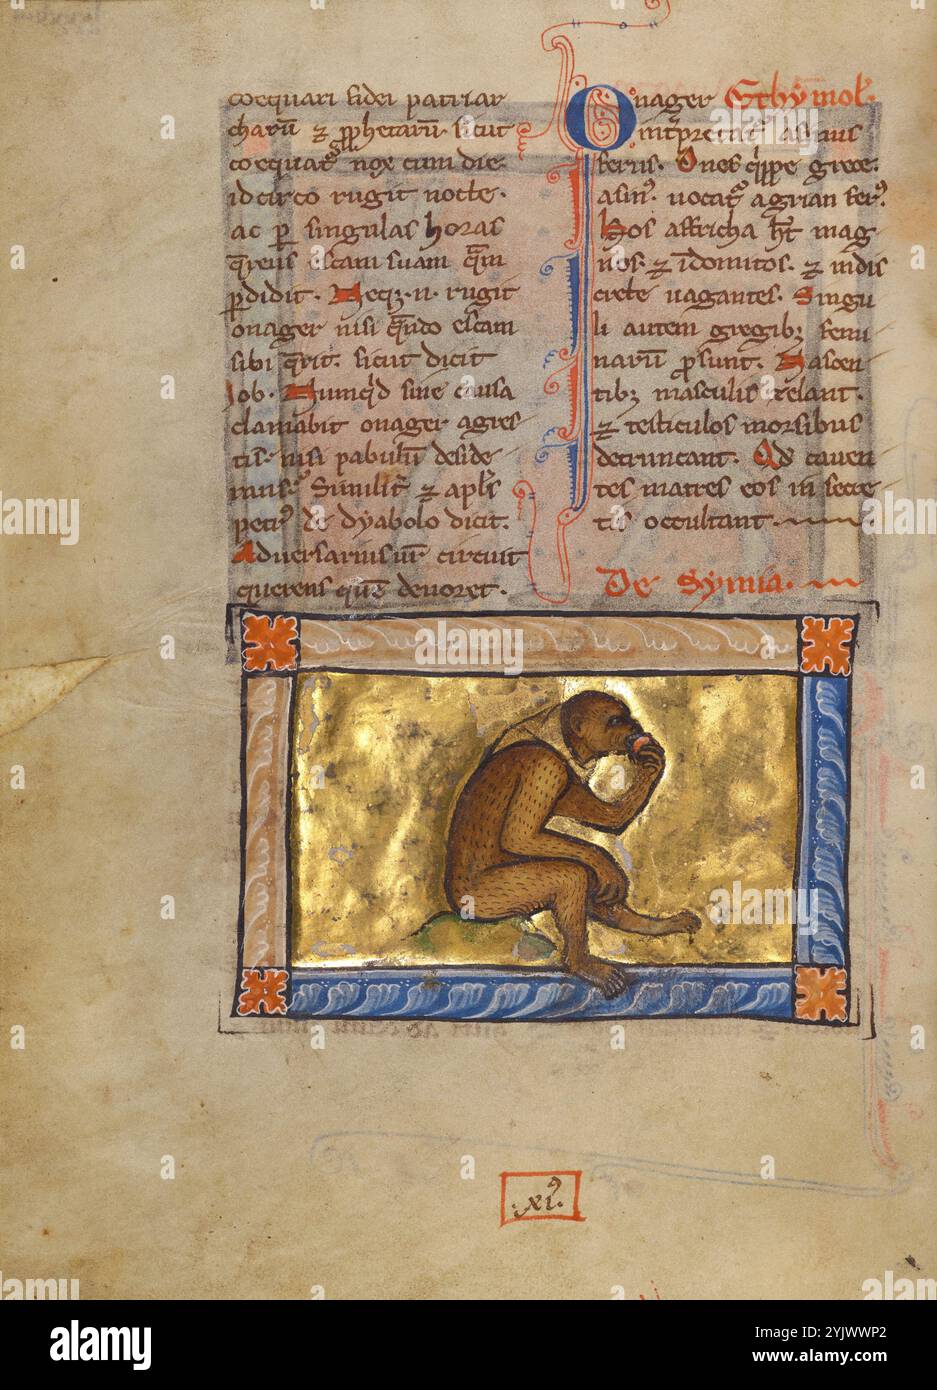 coequari fidei patriar
charū ⁊ ꝓphetarū. sicut
coequat᷑ nox cum die.
idcirco rugit nocte.
ac ꝑ singulas horas
q̄rens escam suam q̄m
ꝑdidit. Neqꝫ .n. rugit
onager nisi q̄ndo escam
sibi q̄rit. sicut dicit
Job. Numq̇d sine causa
clamabit onager agres
tis. nisi pabulū deside
Similit᷑ ⁊ apl̄s
petrꝰ de dyabolo dicit.
Adversarius ur̄ circuit
querens quē devoret.
Onager Ethymol.
int̄pretat᷑ asinus
ferus. Ones grece.
asinꝰ. vocat᷑ agrian ferꝰ.
Hos affricha hт̄ mag
nos. ⁊ īdomitos. ⁊
vagantes. Singu
li autem gregibꝫ femi
narū p̄sunt. Nascen
tibꝫ masculis zelant.
⁊ testiculos morsibus
detruncant. Qd caven
tes matres eos in secre
tis occultant.
De Symia.
.xıꝰ.
alamy
Image ID: 2YJWWP2
www.alamy.com